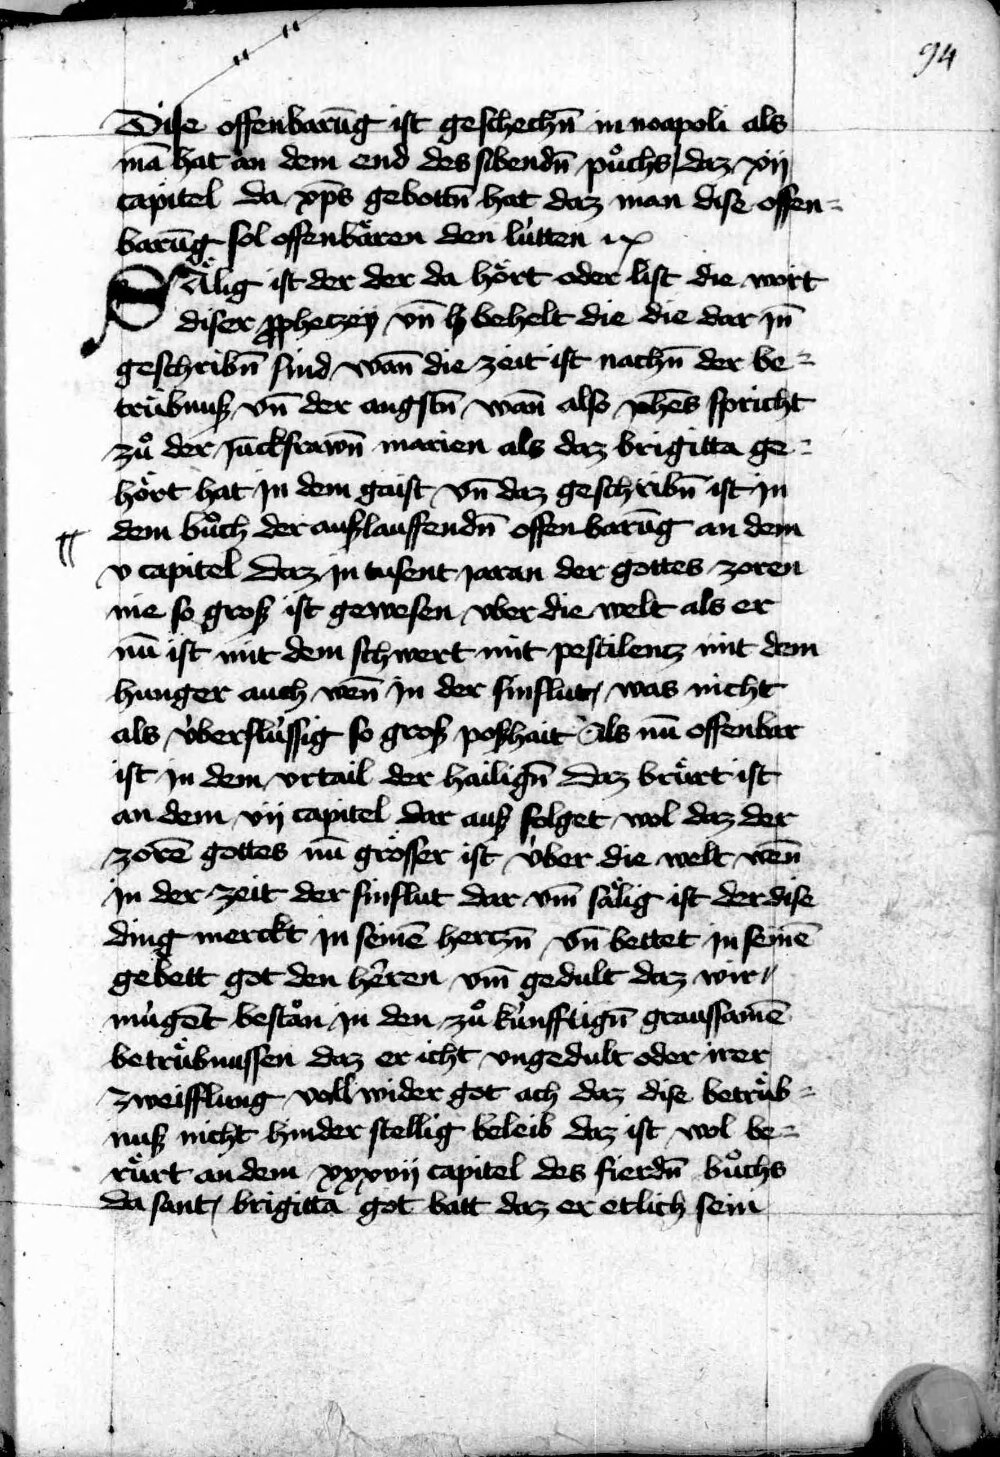 94
Dise offenbarūg ist geschechn̄ in neapoli als
mā hat an dem end des sibendn̄ půchs daz xij
capitel da xp̄s gebottn̄ hat daz man dise offen=
barūg sol offenbären den lütten
SÄlig ist der der da hört oder list die wort
diser ꝓphetzey vn̄ behelt die die dar jn̄
geschribn̄ sind wan̄ die zeit ist nachn̄ der be=
trübnuß vn̄ der angstn̄ wan̄ also joh̄es spricht
zů der jūckfrawn̄ marien als daz brigitta ge=
hört hat jn dem gaist vn̄ daz geschribn̄ ist jn
dem bůch der außlauffendn̄ offenbarūg an dem
v capitel daz jn tusent jaran der gottes zoren
nie so groß ist gewesen vber die welt als er
nū ist mit dem schwert mit pestilentz mit dem
hunger auch wen̄ jn der sinflut was nicht
als überflüssig so groß poßhait Als nū offenbar
ist jn dem vrtail der hailign̄ daz brürt ist
an dem vij capitel dar auß folget wol daz der
zorē gottes nū grösser ist über die welt wen̄
jn der zeit der sinflut dar vm̄ sälig ist der dise
ding merckt jn seinē hertzn̄ vn̄ bettet jn seinē
gebett got den h̄eren vm̄ gedult daz wir
mügēt bestån jn den zů künfftign̄ graussamē
betrübnussen daz er icht vngedult oder irer
zweifflung voll wider got ach daz dise betrüb=
nuß nicht hinder stellig beleib daz ist wol be=
rürt an dem xxxvij capitel des fierdn̄ bůchs
da sant brigitta got batt daz er etlich sein